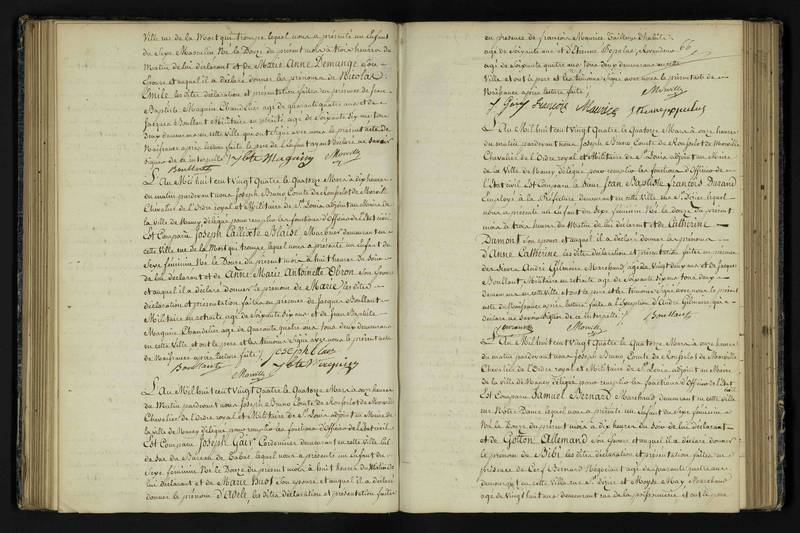 ville rue de la Mort qui trompe lequel nous a présenté un Enfant
du Sexe Masculin Né le Douze du présent mois à trois heures du
Matin de lui déclarant et de Marie Anne Demange Son
Epouse et auquel il a déclaré donner les prénoms de Nicolas
Emile les dites déclaration et présentation faites en présence de Jean
Baptiste Maguin Chandelier agé de quarante quatre ans et de
Jacques Boullant Militaire en retraite agé de Soixante Six ans tous
deux demeurans en cette ville qui ont Signé avec nous le présent acte de
Naissance après lecture faite le pere de l'enfant ayant déclaré ne Savoir
Signer de ce interpellé / Jbte Maguin Morville
Boullant
L'An Mil huit cent Vingt Quatre le Quatorze Mars à dix heures
du matin pardevant nous Joseph Bruno Comte de Morville
Chevalier de l'Ordre royal et Militaire de St Louis adjoint au Maire de la
ville de Nancy délégué pour remplir les fonctions d'Officier de l'Etat civil
Est Comparu Joseph Calixte Blaise Marbrier demeurant en
cette Ville rue de la Mort qui trompe lequel nous a présenté un Enfant du
Sexe féminin Né le Douze du présent mois à huit heures du Soir
de lui déclarant et de Anne Marie Antoinette Obron Son Epouse
et auquel il a déclaré donner le prénom de Marie les dites
déclaration et présentation faites en présence de Jacques Boullant
Militaire en retraite agé de Soixante Six ans et de Jean Baptiste
Maguin Chandelier agé de Quarante quatre ans tous deux demeurans
en cette Ville et ont le pere et les témoins Signé avec nous le présent acte
de Naissance après lecture faite / Joseph
Boullant Morville Jbte Maguin
L'An Mil huit cent Vingt Quatre le Quatorze Mars à onze heures
du Matin pardevant nous Joseph Bruno Comte de Morville
Chevalier de l'Ordre royal et Militaire de St Louis adjoint au Maire de
la ville de Nancy délégué pour remplir les fonctions d'Officier de l'Etat civil
Est Comparu Joseph Gary Cordonnier demeurant en cette Ville
du Bureau de Tabac lequel nous a présenté un Enfant du
Sexe féminin Né le Douze du présent mois à huit heures du Matin de
lui déclarant et de Marie Son épouse et auquel il a déclaré
donner le prénom D'Adèle, les dites déclaration et présentation faites
en présence de François Maurice
agé de Soixante ans et d'Etienne
66
agé de Soixante quatre ans tous deux demeurans en cette
Ville et ont le pere et les témoins Signé avec nous le présent acte de
Naissance après lecture faite / Morville
J Gary François Maurice
L'An Mil huit cent Vingt Quatre le Quatorze Mars à onze heures
du matin pardevant nous Joseph Bruno Comte de Morville
Chevalier de l'Ordre royal et Militaire de St Louis adjoint au Maire
de la Ville de Nancy délégué pour remplir les fonctions d'Officier de
l'Etat civil Est Comparu le Sieur Jean Baptiste François Durand
Employé à la Préfecture demeurant en cette Ville rue St Dizier lequel
nous a présenté un Enfant du Sexe féminin Né le Douze du présent
mois à trois heures du Matin de lui déclarant et de Catherine
Dumont Son épouse et auquel il a déclaré donner les prénoms
d'Anne Catherine les dites déclaration et présentation faites en présence
des Sieurs André Marchand agé de Vingt deux ans et de Jacques
Boullant Militaire en retraite agé de Soixante Six ans tous deux
demeurans en cette Ville et ont le pere et les témoins Signé avec nous le présent
acte de Naissance après lecture faite à l'Exception d'André qui a
déclaré ne Savoir Signer de ce interpellé / Boullant
Durand Morville
L'An Mil huit cent Vingt Quatre le Quatorze Mars à onze heures
du matin pardevant nous Joseph Bruno Comte de Morville
Chevalier de l'Ordre royal et Militaire de St Louis adjoint au Maire
de la ville de Nancy délégué pour remplir les fonctions d'Officier de l'Etat civil
Est Comparu Samuel Bernard Marchand demeurant en cette Ville
rue Notre Dame lequel nous a présenté un Enfant du Sexe féminin
Né le Douze du présent mois à dix heures du Soir de lui déclarant
et de Gotton Allemand Son Epouse et auquel il a déclaré donner
le prénom de Bibi les dites déclaration et présentation faites en
présence de Cerf Bernard Négociant agé de quarante quatre ans
demeurant en cette Ville rue St Dizier et Moyse May Marchand
agé de Vingt huit ans demeurant rue de la poissonnerie et ont le pere